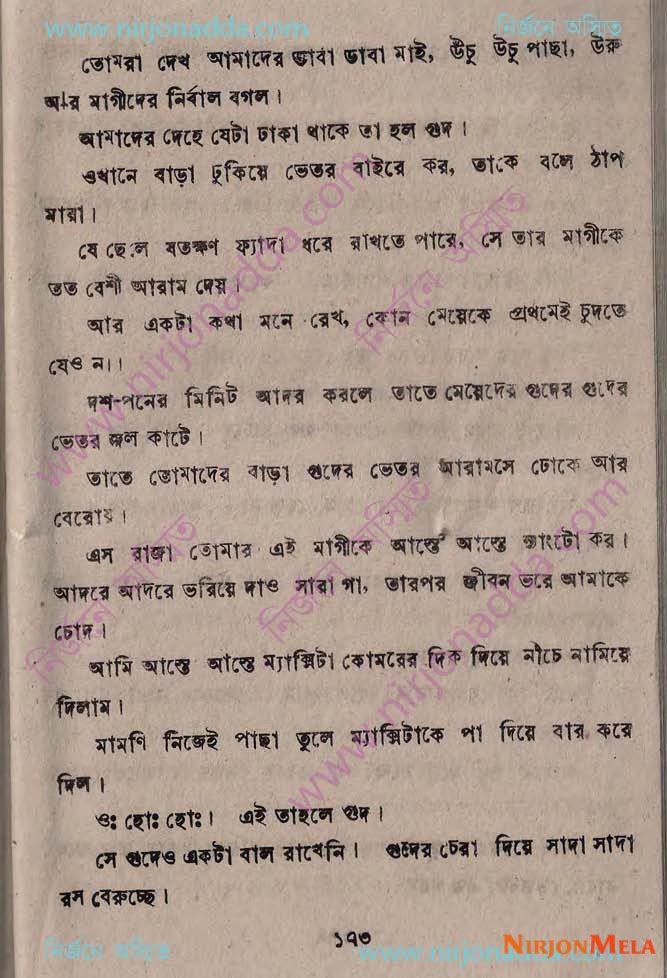 www.nirjonadda.com নির্জনে অস্মিত
তোমরা দেখ আমাদের ডাবা ডাবা মাই, উঁচু উঁচু পাছা, উরু
আর মাগীদের নির্বাল বগল।
আমাদের দেহে যেটা ঢাকা থাকে তা হল গুদ।
ওখানে বাড়া ঢুকিয়ে ভেতর বাইরে কর, তাকে বলে ঠাপ
মারা।
যে ছেলে যতক্ষণ ফ্যাদা ধরে রাখতে পারে, সে তার মাগীকে
তত বেশী আরাম দেয়।
আর একটা কথা মনে রেখ, কোন মেয়েকে প্রথমেই চুদতে
যেও না।
দশ-পনের মিনিট আদর করলে তাতে মেয়েদের গুদের গুদের
ভেতর জল কাটে।
তাতে তোমাদের বাড়া গুদের ভেতর আরামসে ঢোকে আর
বেরোয়।
এস রাজা তোমার এই মাগীকে আস্তে আস্তে ন্যাংটো কর।
আদরে আদরে ভরিয়ে দাও সারা গা, তারপর জীবন ভরে আমাকে
চোদ।
আমি আস্তে আস্তে ম্যাক্সিটা কোমরের দিক দিয়ে নীচে নামিয়ে
দিলাম।
মামণি নিজেই পাছা তুলে ম্যাক্সিটাকে পা দিয়ে বার করে
দিল।
ওঃ হোঃ হোঃ। এই তাহলে গুদ।
সে গুদেও একটা বাল রাখেনি। গুদের চেরা দিয়ে সাদা সাদা
রস বেরুচ্ছে।
১৭৩
নির্জনে অস্মিত www.nirjonadda.com
NIRJONMELA